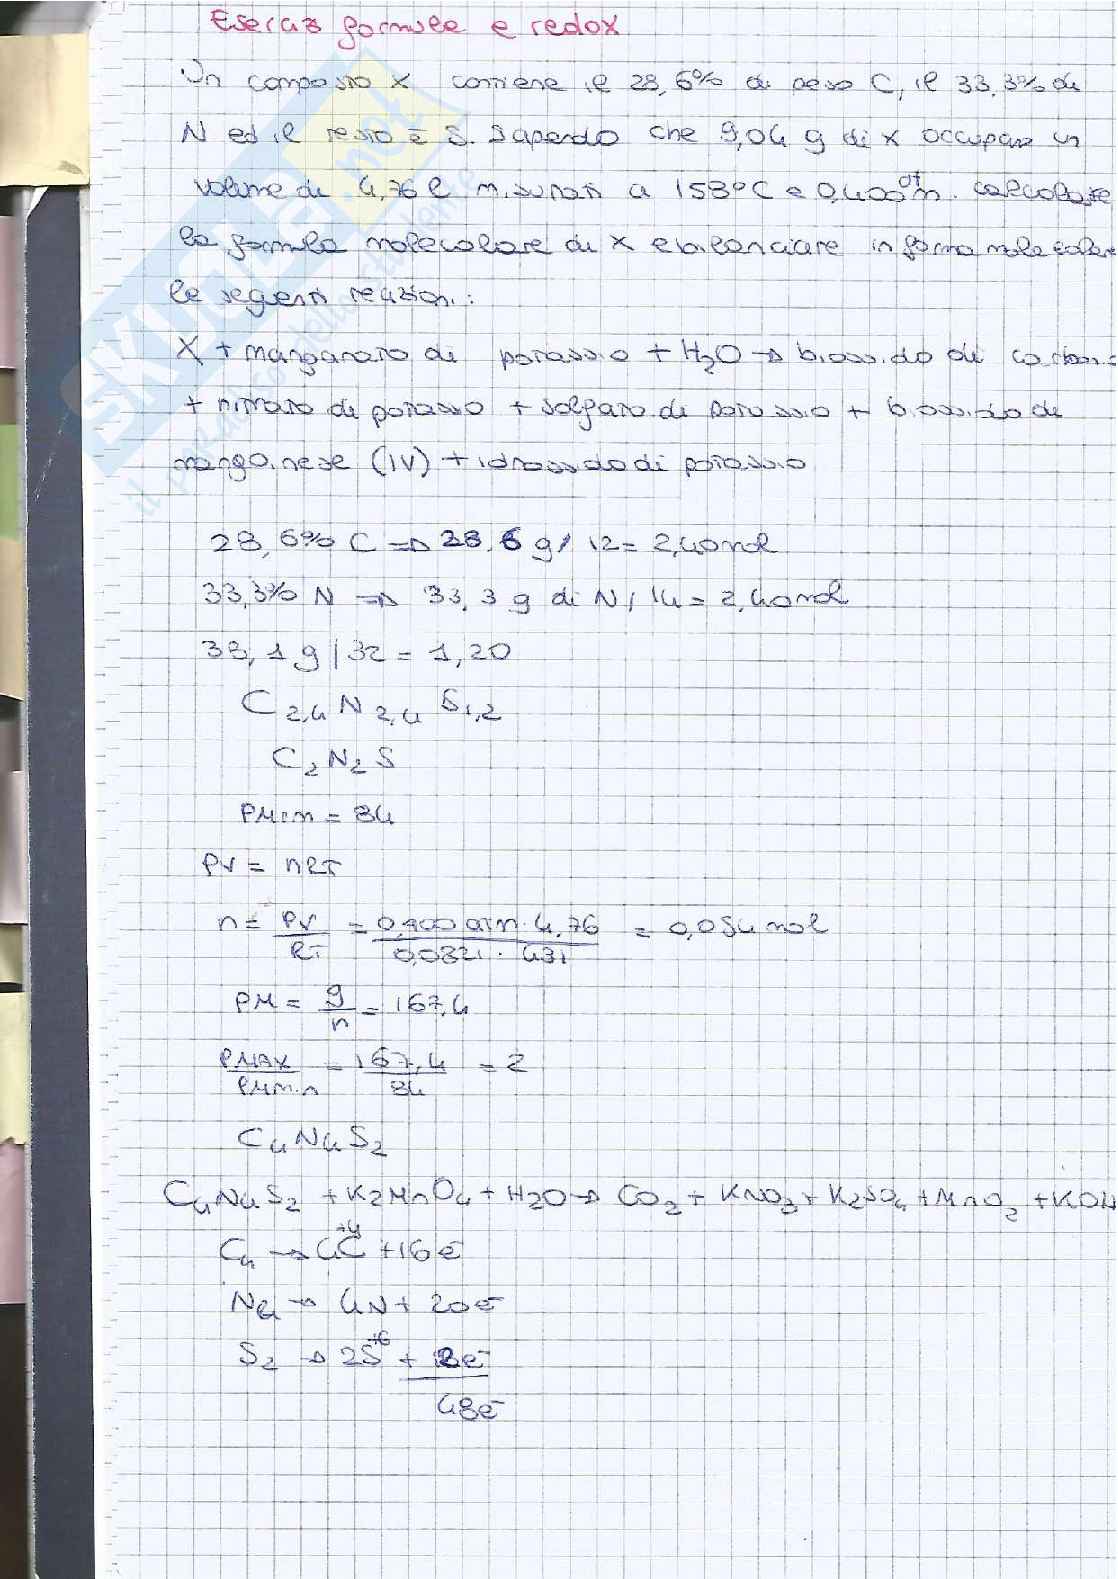 Esercizi formule e redox
Un composto X contiene il 28,6% di peso C, il 33,3% di
N ed il resto è S. Sapendo che 9,04 g di X occupano un
volume di 4,76 l misurati a 158°C e 0,400 atm. calcolare
la formula molecolare di X e bilanciare in forma molecolare
le seguenti reazioni:
X + manganato di potassio + H2O → biossido di carbonio
+ nitrato di potassio + solfato di potassio + biossido di
manganese (IV) + idrossido di potassio
28,6% C ⇒ 28,6 g / 12 = 2,40 mol
33,3% N ⇒ 33,3 g di N / 14 = 2,40 mol
38,1 g / 32 = 1,20
C2,4 N2,4 S1,2
C2N2S
PMmin = 84
PV = nRT
n = PV/RT = 0,400 atm · 4,76 / 0,0821 · 431 = 0,054 mol
PM = g/n = 167,4
PMAX/PMmin = 167,4/84 = 2
C4N4S2
C4N4S2 + K2MnO4 + H2O → CO2 + KNO3 + K2SO4 + MnO2 + KOH
C4 → 4C+4 + 16e-
N4 → 4N + 20e-
S2 → 2S+6 + 12e-
48e-
SKUOLA.net
il paradiso dello studente